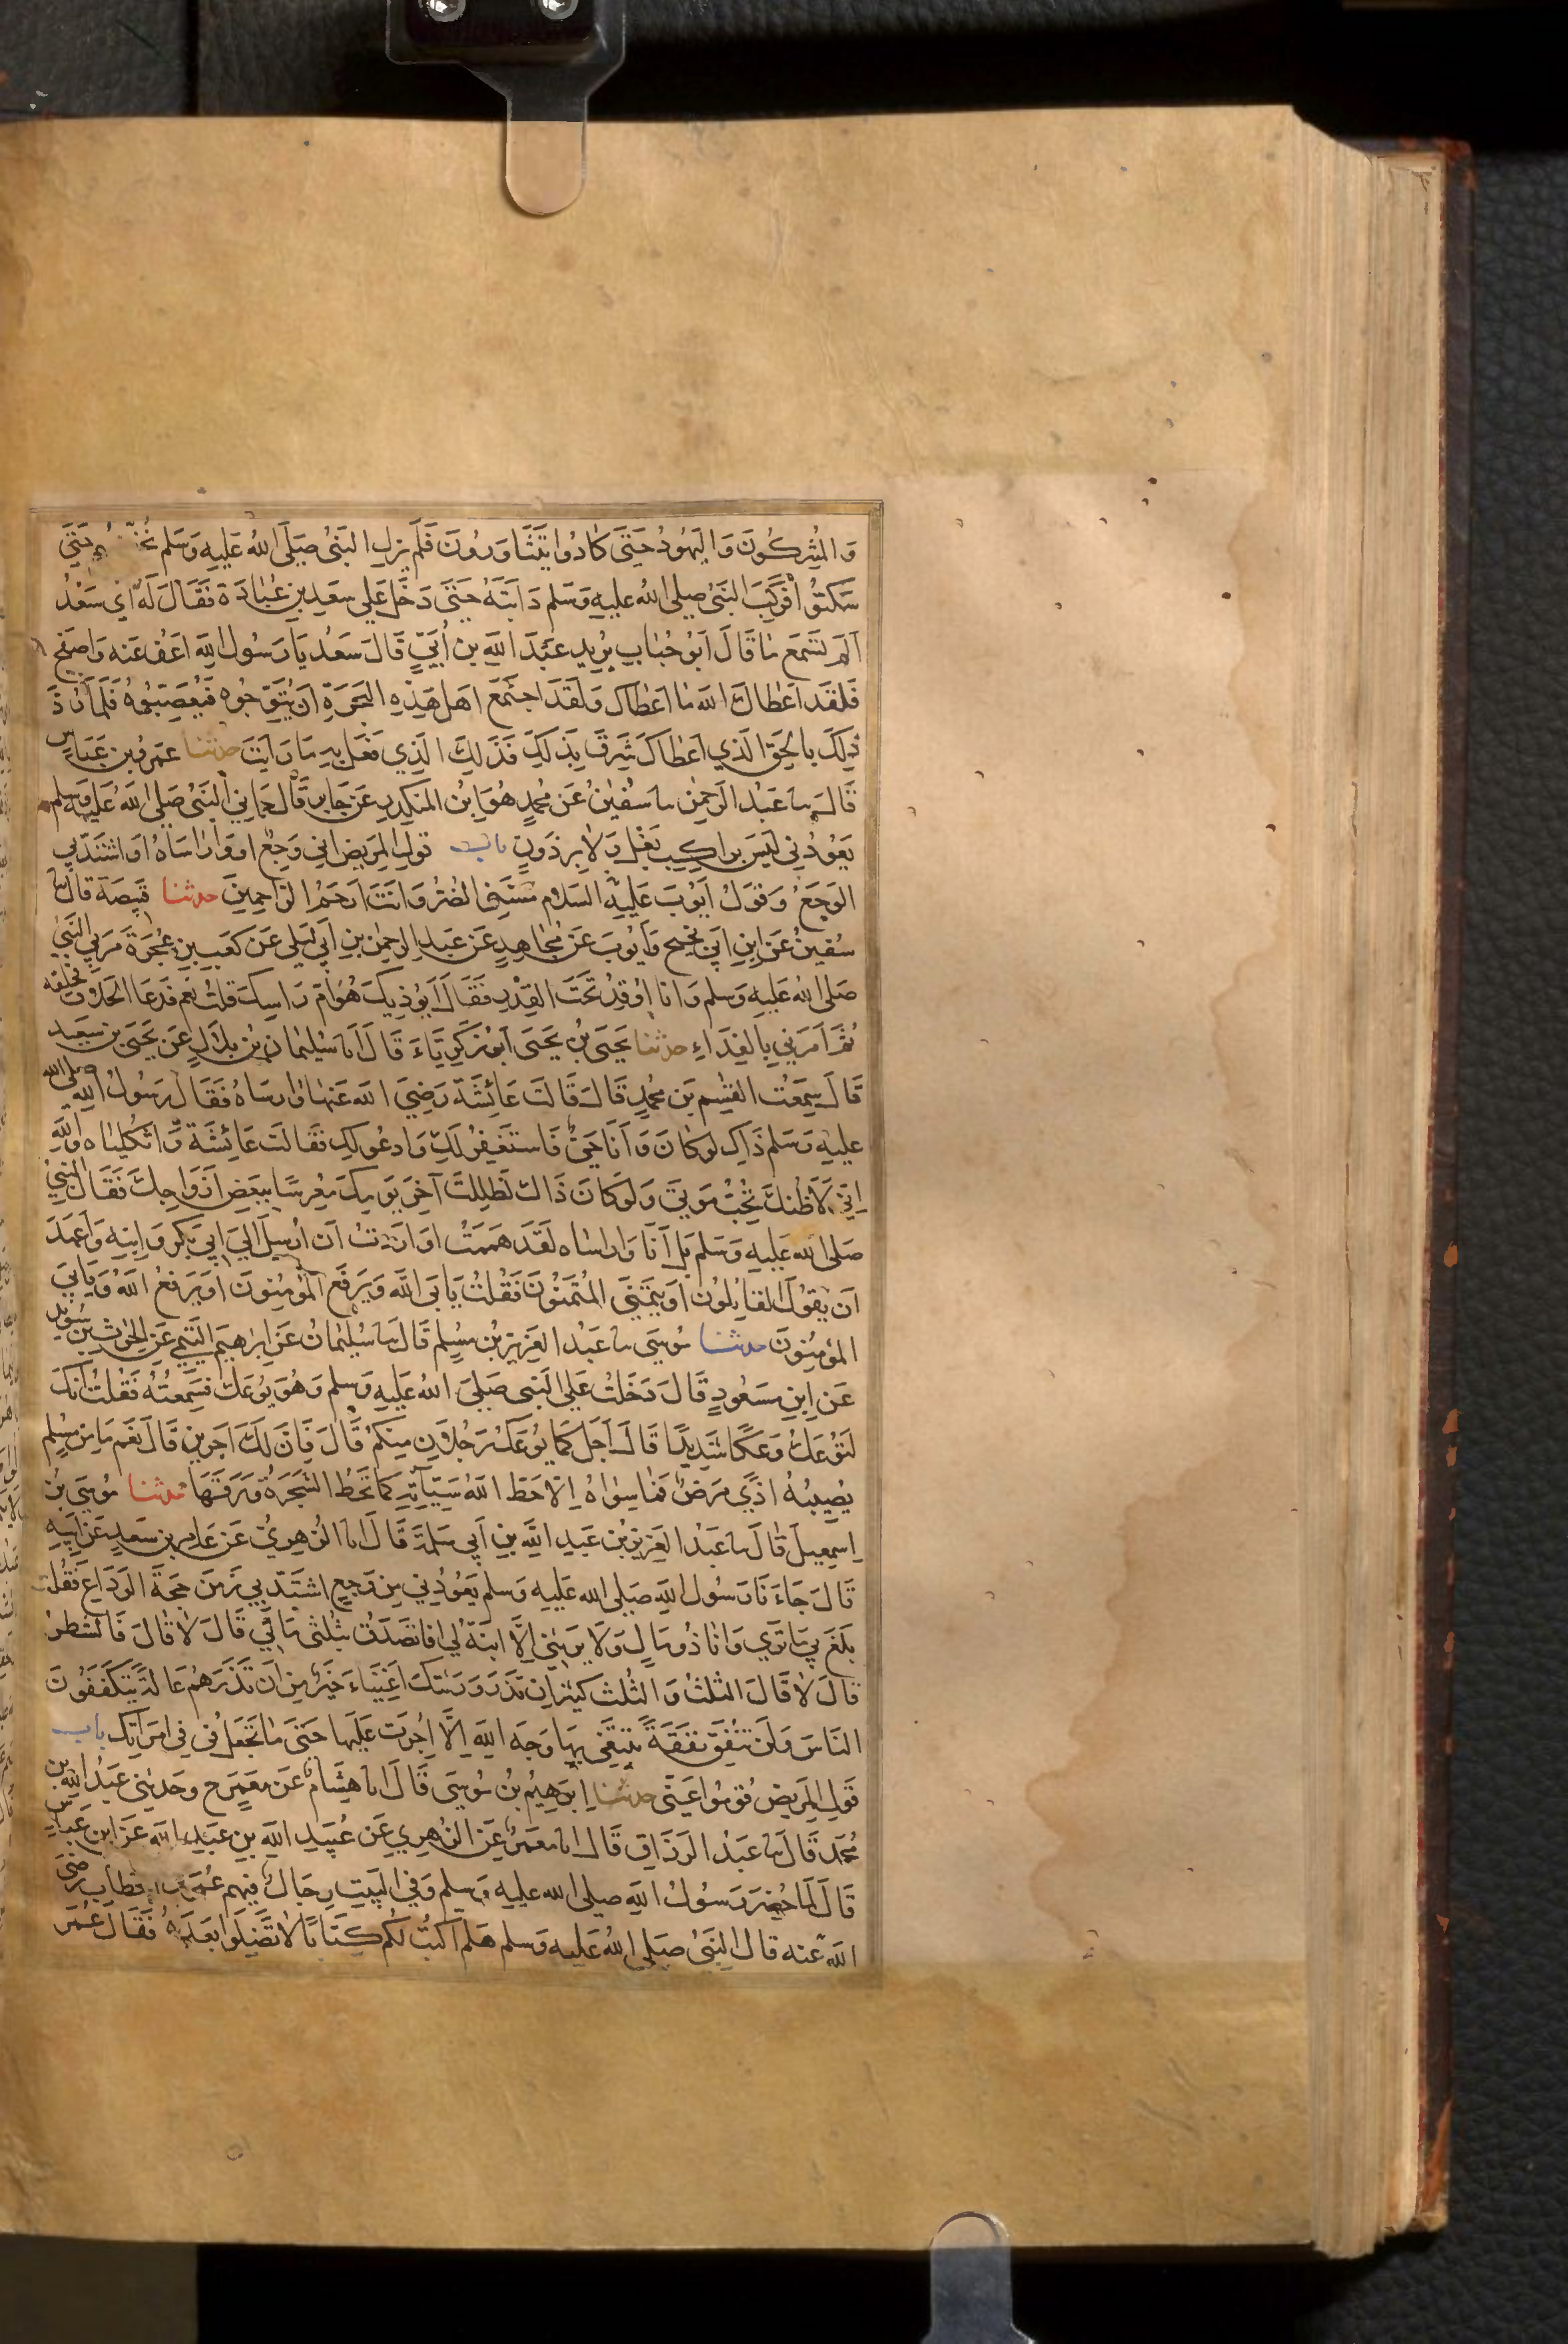 وَالمُشِركُونَ وَاليَهُودُ حَتَّى كَادُوا يَتَثَاوَرُونَ فَلَم يزلِ النَبيُ صَلَى اللهُ عَليهِ وَسَلم حَتَّى
سَكتُوا فَرَكِبَ النَبيُ صلى اللهُ عليهِ وَسَلم دَابتَهُ حَتَى دَخَل عَلى سعَدِ بنِ عُبَادَةَ فَقَالَ لَهُ اَي سَعْدُ
اَلَم تَسمَع مَا قَالَ اَبُو حُبَابٍ يرُيد عَبدَ اللهِ بن أُبَيٍّ قَالَ سَعُد يَا رَسُول اللهِ اعَفُ عَنه وَاصفح
فَلقَد اَعطَاكَ الله مَا اَعطاكَ وَلقَد اجتَمَع اَهل هَذِهِ البَحرَةِ اَن يُتَوِّجوُه فَيُعَصِّبُوهُ فَلمَا رَدَّ
ذَلِكَ بالحَقِ الَذِي اَعطاكَ شَرِقَ بذَلكَ فَذَلِكَ الَذِي فَعَل بهِ مَا رَاَيتَ حدثنا عَمرُو بن عَبَاسٍ
قَالَ سا عَبدُ الرَحمنِ سا سفُينُ عَن محُمدٍ هُوَ ابنُ المُنكدِرِ عَن جَابرٍ قَالَ جَاءنِي النَبيُ صَلى اللهُ عَليهِ وَسلم
يَعُودُنِي لَيسَ برَاكبِ بَغلٍ وَلا بِرذَونٍ باب قولِ المَريضِ انِي وَجِعٌ اوَ وَارَاسَاهُ اوَ اشتَدَّ بي
الوَجَعُ وَقَولُ اَيُوبَ عَليهِ السَلام مَسَّنيَ الضُرُ وَانَتَ اَرحَمُ الرَاحِمِينَ حدثنا قَبِيصَة قالَ سا
سُفينُ عَن ابنِ اَبي نجَيحٍ وَايُوبَ عَن مُجَاهِدٍ عَن عَبدِ الرحمنِ بنِ اَبي لَيلى عَن كَعبِ بنِ عُجرَةَ مَرَ بيَ النَبيُ
صَلى اللهُ عَليهِ وَسَلم وَانا اوُقِدُ تَحتَ القِدرِ فَقَالَ اَيُؤذِيكَ هَوَامُّ رَاسِكَ قُلتُ نَعم فَدَعَا الحَلاقَ فحلقه
ثُمَّ اَمَرَنِي بِالفِدَاءِ حدثنا يَحيَى بنُ يَحيَى اَبُو زَكَرِيَّاءَ قَالَ اَنا سُليمَانُ بن بلَالٍ عَن يَحيَى بن سَعِيدٍ
قَالَ سَمِعتُ القسِمَ بن محُمدٍ قَالَ قَالَت عَائشَة رَضِيَ اللهُ عَنهَا وَارَاسَاهُ فَقَالَ رَسُولُ اللهِ صلى الله
عَليهِ وَسَلم ذَاكِ لوَ كانَ وَاَنَا حَيٌّ فَاستَغفِرُ لَكِ وَادعُو لَكِ فَقَالَت عَائشَة وَاثُكليَاه وَاللهِ
اِنِّي لَاَظُنُكَ تُحِبُّ مَوتِي وَلَو كَانَ ذَاكَ لَظَلِلتَ آخِرَ يَومِكَ مُعَرِّسًا ببَعضِ اَزوَاجِكَ فَقَالَ النَبيُ
صَلى الله عَليهِ وَسَلم بَل اَنَا وَارَاسَاه لَقَد هَمَمتُ اوَ اَرَدتُ اَن اُرسِلَ الَى ابَي بَكرٍ وَابنِهِ وَاَعهَدَ
اَن يَقُولَ القَائلُونَ اوَ يَتمَنَّى المُتَمَنُّونَ فَقُلتُ يَابَى اللهُ وَيَدفَع المُؤمِنُونَ اوَ يَدفَعُ اللهُ وَيَابَى
المُؤمِنُونَ حدثنا مُوسَى سا عَبدُ العَزِيزِ بُن مسُلِمٍ قَالَ سا سُليمَانُ عَن اِبرَاهِيمَ التَيمِي عَنِ الحَارثِ بنِ سُوَيدٍ
عَن ابنِ مسَعُودٍ قَالَ دَخَلتُ عَلى النَبيِ صَلى اللهُ عَليهِ وَسلم وَهُوَ يُوعَكُ فَسَمِعتُهُ فَقُلتُ انكَ
لَتُوعَكُ وَعكًا شَدِيدًا قَالَ اَجَل كمَا يُوعَكُ رَجُلَانِ مِنكُم قَالَ فَاِنَ لَكَ اَجرينِ قَالَ نَعَم مَا مِن مُسلِمٍ
يُصِيبُهُ اذًي مَرَضٌ فمَا سِوَاهُ اِلاحَطَّ اللهُ سَيّاتِهِ كَمَا تَحُطُّ الشجَرَةُ وَرَقَهَا حدثنا مُوسَى بنُ
اِسمعيلَ قَالَ سا عَبدُ العَزِيزِ بُن عَبدِ اللهِ بنِ اَبي سَلمَةَ قَالَ انا الزُهرِيُ عَن عَامِرِ بن سَعدٍ عَن اَبِيهِ
قَالَ جَاءَنَا رَسُول اللهِ صَلى الله عَليهِ وَسلم يَعُودُنِي مِن وَجَعٍ اشتَدَّ بي زَمَنَ حَجَةِ الوَدَاعِ فَقُلتُ
بَلغَ بي مَا تَرَي وَانَا ذُو مَالٍ وَلَا يَرثِني اِلَّا ابنَةٌ لي افَاتَصَدَقُ بثُلثَي مَالي قَالَ لَا قَالَ فَالشَطرُ
قَالَ لَا قَالَ الثلثُ وَالثُلثُ كثيٌر اِن تَذَرَ وَرَثتَكَ اَغنِيَاءَ خَيرٌ مِن اَن تَذَرَهُم عَالةً يَتكفَفُونَ
النَاسَ وَلَن تُنفِقَ نفَقَةً تَبتَغَي بهَا وَجَه اللهِ اِلَّا اُجِرتَ عَليهَا حَتَى مَا تَجعَلُ في فِي امرَاتِك باب
قَولِ المَريضِ قُومُوا عَنّى حدثنا اِبَرهِيمُ بُن مُوسَى قَالَ انا هِشَام عَن مَعمَرٍ ح وحَدثنِي عَبدُ اللهِ بن
مُحَمدٍ قَالَ سا عَبدُ الرَزَاقِ قَالَ انا مَعمَرٌ عَن الزُهرِي عَن عُبَيدِ اللهِ بنِ عَبدِ الله عَن ابنِ عَبَاسٍ
قَالَ لمَا حُضِرَ رَسُولُ اللهِ صلى الله عليه وَسلم وَفي البَيتِ رِجَالٌ فيهِم عُمَر بن الخطابِ رضيَ
اللهُ عَنه قالَ النَبيُ صَلى اللهُ عَليهِ وَسلم هَلُم اكتُب لَكُم كتَابًا لَا تَضِلوا بَعدَهُ فَقَالَ عُمَر